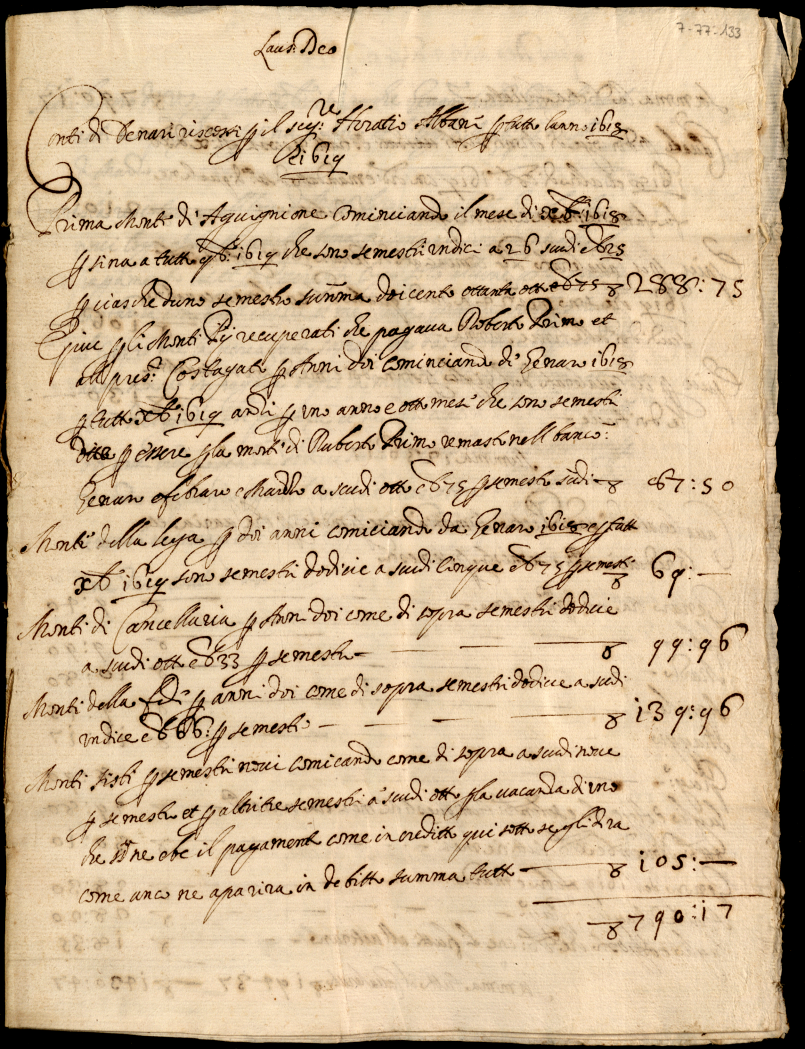 7-77:133
Laus: Deo
Conti di Denari riscossi p il sig.re Horatio Albani p tutto l'anno 1618
e 1619
Prima Monti di Avignione cominciando il mese di xbr 1618
p sina a tutto 9bre 1619 che sono semestri undici a 26 scudi e b 25
p ciascheduno semestro summa doicento ottanta otto e b 75 8 288:75
E piu p li Monti Pij recuperati che pagava Roberto Primo et
al pres.e Costaguti p Anni doi cominciando di Genaro 1618
p tutto xbr 1619 anzi p uno anno e otto mesi che sono semestri
otto p essere p la morte di Ruberto Primo remasto nell banco:
Genaro e febraro e Marzo a scudi otto e b 75 p semestro sudi 8 67:50
Monti della lega p doi anni cominciando da Genaro 1618 e p tutto
xbr 1619 sono semestri dodicie a scudi cinque e b 75 p semestri 8 69:—
Monti di Cancellaria p Anni doi come di sopra semestri dodicie
a scudi otto e b 33 p semestro — 8 99:96
Monti della Fede p anni doi come di sopra semestri dodicie a scudi
undice e b 66: p semestro — 8 139:96
Monti Sisti p semestri novi comicando come di sopra a scudi nove
p semestro et p altri tre semestri a scudi otto p la vacanda di uno
che ne ebe il pagamento come in credito qui sotto se gli dra
come anco ne aparira in debitto summa tutto — 8 105:—
8 790:17